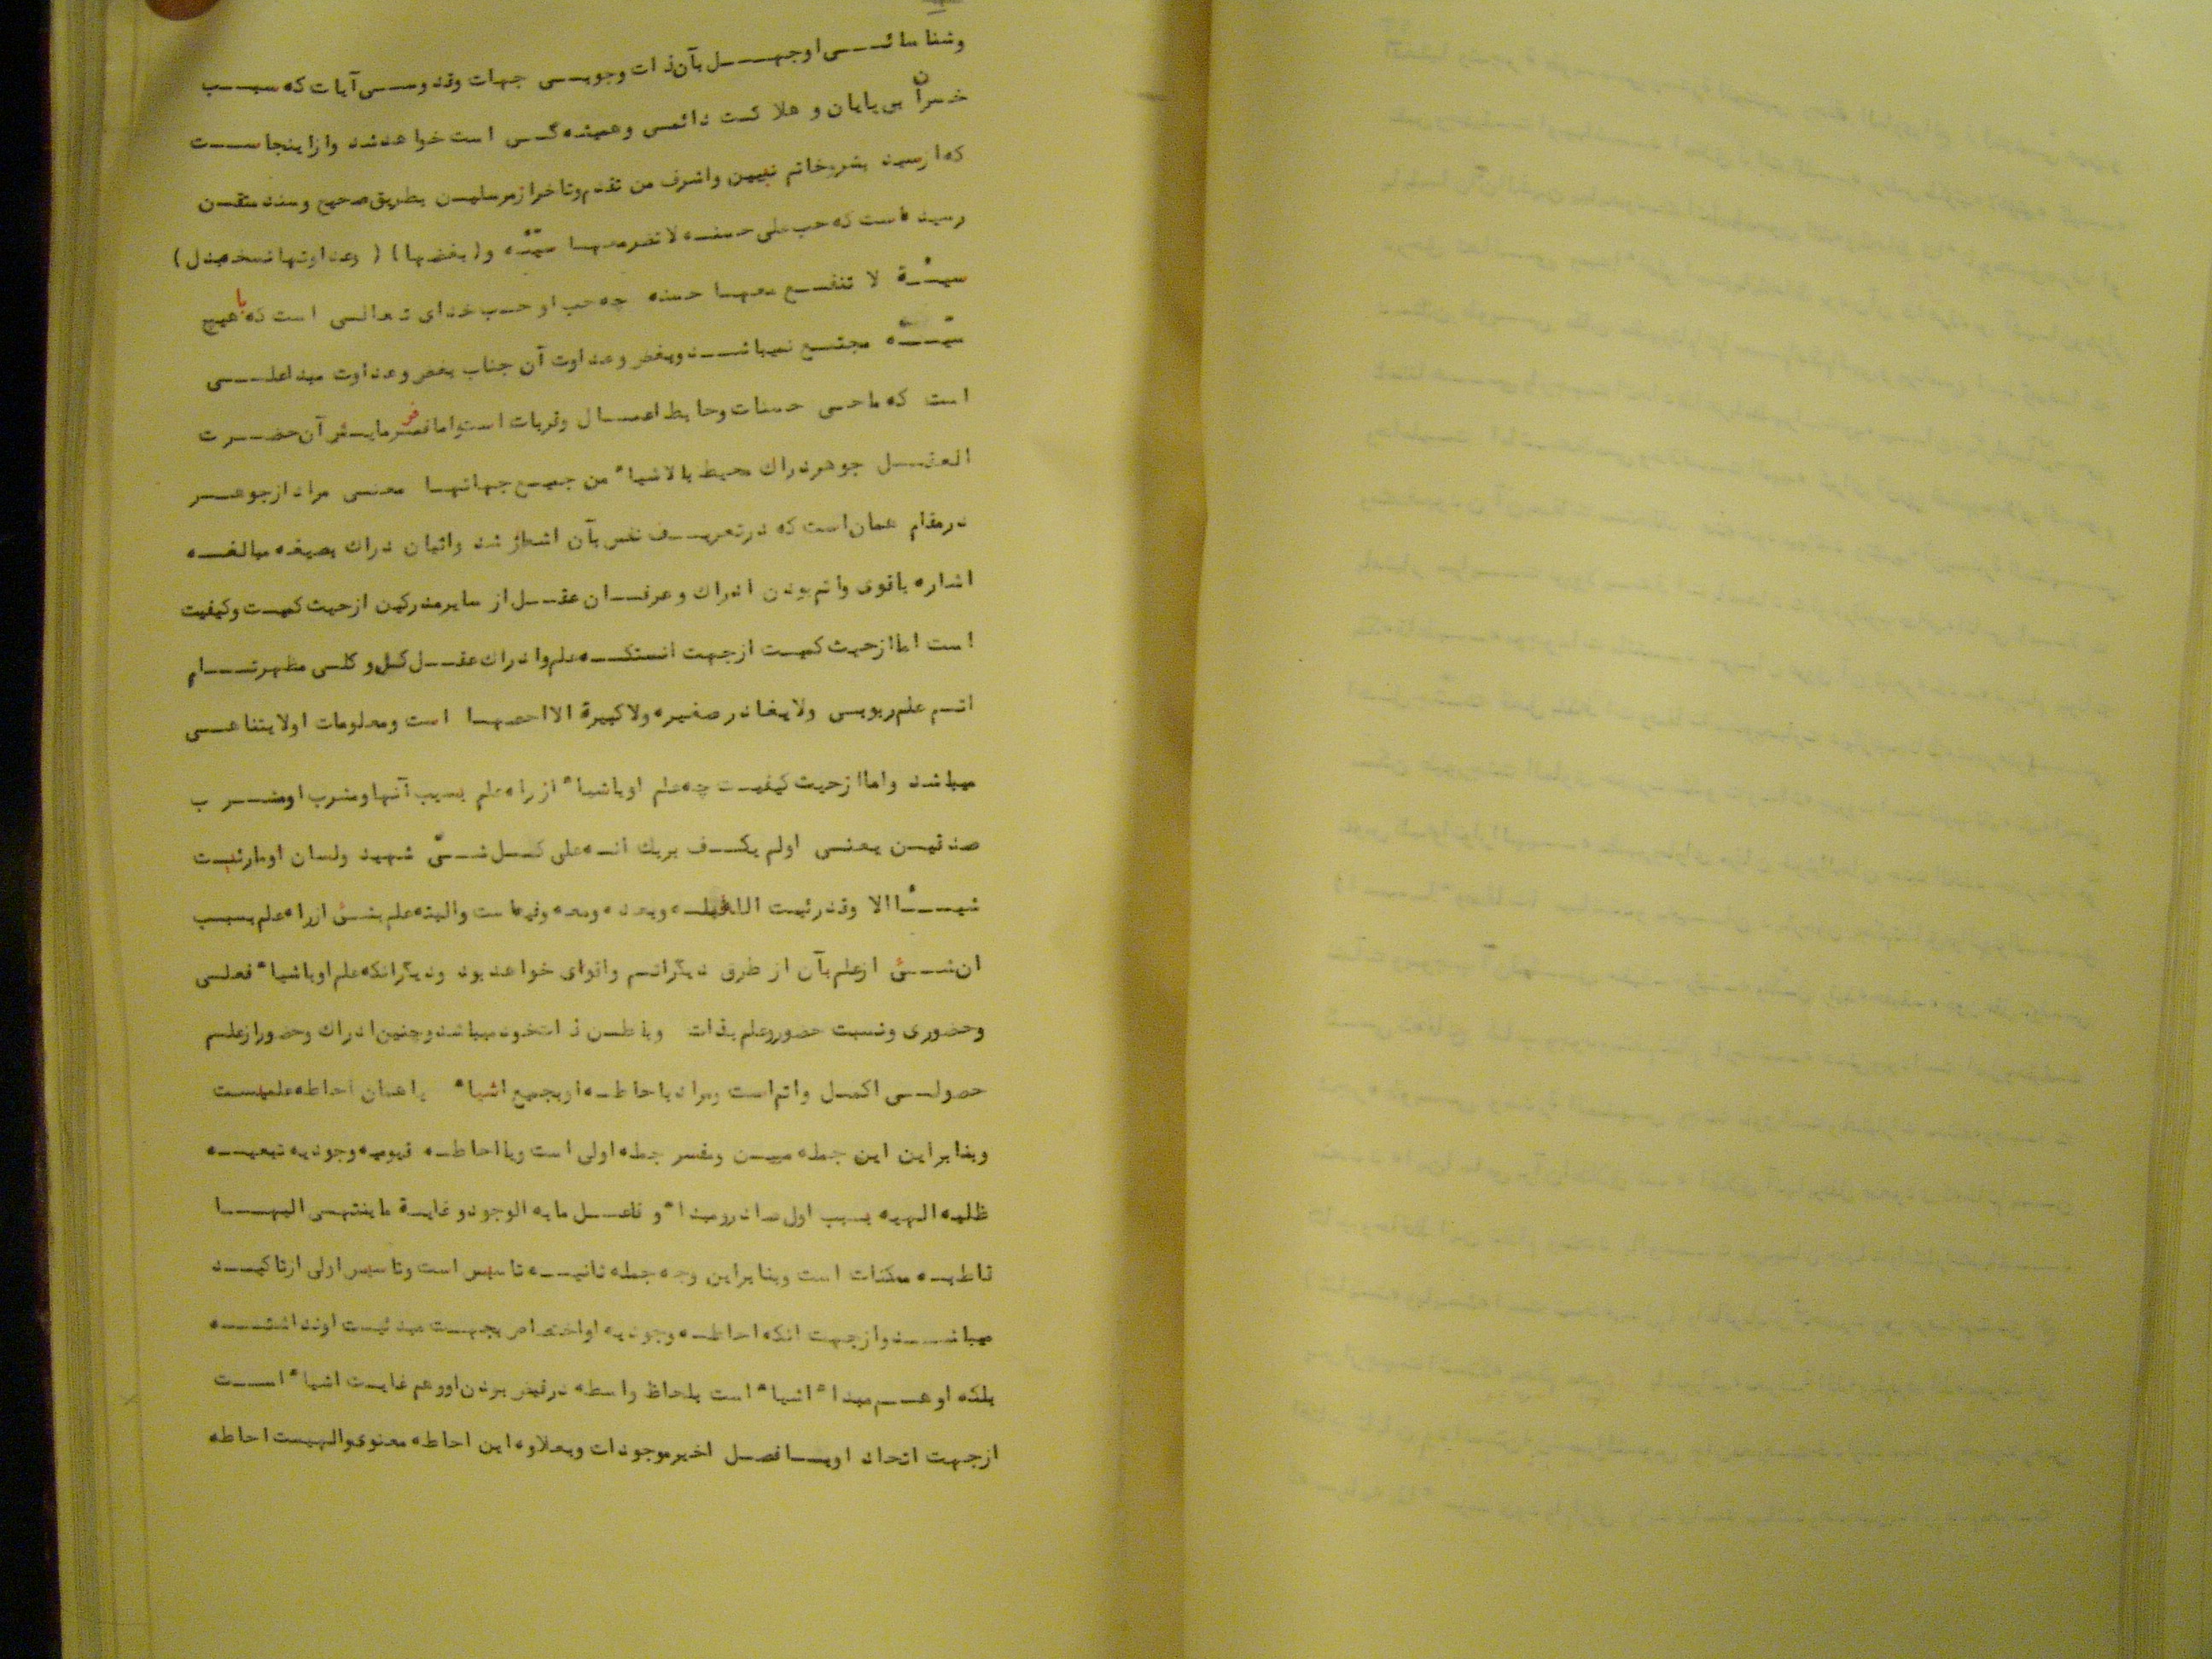 وشناسائی او جهل بآن ذات وجوبی جهات وقدوسی آیات که سبب
خسران بی پایان و هلاکت دائمی و همیشه گی است خواهد شد و از اینجاست
که از سید بشر و خاتم نبیین و اشرف من تقدم و تاخر از مرسلین بطریق صحیح و سند متقن
رسیده است که حب علی حسنه لا تضر معها سیئه و (بغضها) ( وعداوتها نسخه بدل )
سیئة لا تنفع معها حسنه چه حب او حب خدای تعالی است که با هیچ
سیئه مجتمع نمیباشد و بغض و عداوت آن جناب بغض و عداوت مبدء اعلی
است که ماحی حسنات و حابط اعمال و قربات است واما فرمایش آن حضرت
العقل جوهر دراك محیط بالاشیاء من جمیع جهاتها معنی مراد از جوهر
در مقام همان است که در تعریف نفس بآن اشعار شد و اتیان دراك بصیغه مبالغه
اشاره باقوی و اتم بودن ادراك و عرفان عقل از سایر مدرکین از حیث کمیت و کیفیت
است اما از حیث کمیت از جهت انستکه علم و ادراك عقل کل و کلی مظهر تام
اتم علم ربوبی ولا یغادر صغیره ولا کبیرة الا احصها است و معلومات او لا یتناهی
میباشد و اما از حیث کیفیت چه علم او باشیاء از راه علم بسبب آنها و مشرب او مشرب
صدقین یعنی اولم یکف بربك انه علی کل شیّ شهید ولسان او مارئیت
شیئا الا وقد رئیت الله قبله وبعده ومعه وفیه است والبته علم بشئ از راه علم بسبب
ان شئ از علم بآن از طرق دیگر اتم و اقوای خواهد بود و دیگر انکه علم او باشیاء فعلی
وحضوری و نسبت حضور و علم بذات وباطن ذات خود میباشد و چنین ادراك وحضور از علم
حصولی اکمل و اتم است و مراد با حاطه او بجمیع اشیاء یا همان احاطه علمیست
وبنابراین این جمله مبین و مفسر جمله اولی است ویا احاطه قیومیه وجودیه تبعیه
ظلیه الهیه بسبب اول صادر و مبداء و فاعل ما به الوجود و غایة ما ینتهی الیها
قاطبه ممکنات است وبنابراین وجه جمله ثانیه تاسیس است و تاسیس اولی از تاکید
میباشد و از جهت انکه احاطه وجودیه او اختصاص بجهت مبدئیت او نداشته
بلکه او هم مبداء اشیاء است بلحاظ واسطه در فیض بودن او و هم غایت اشیاء است
از جهت اتحاد او با فصل اخیر موجودات و بعلاوه این احاطه معنوی و الهیست احاطه